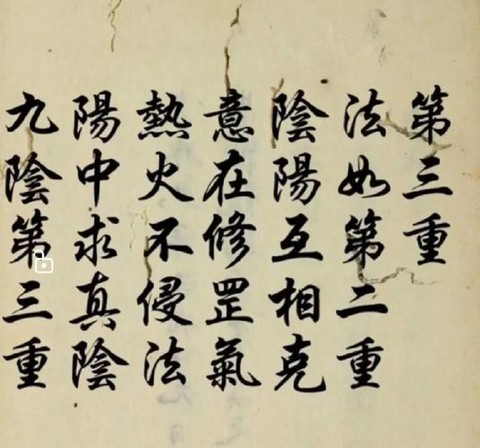 第三重
法如第二重
陰陽互相克
意在修罡氣
熱火不侵法
陽中求真陰
九陰第三重